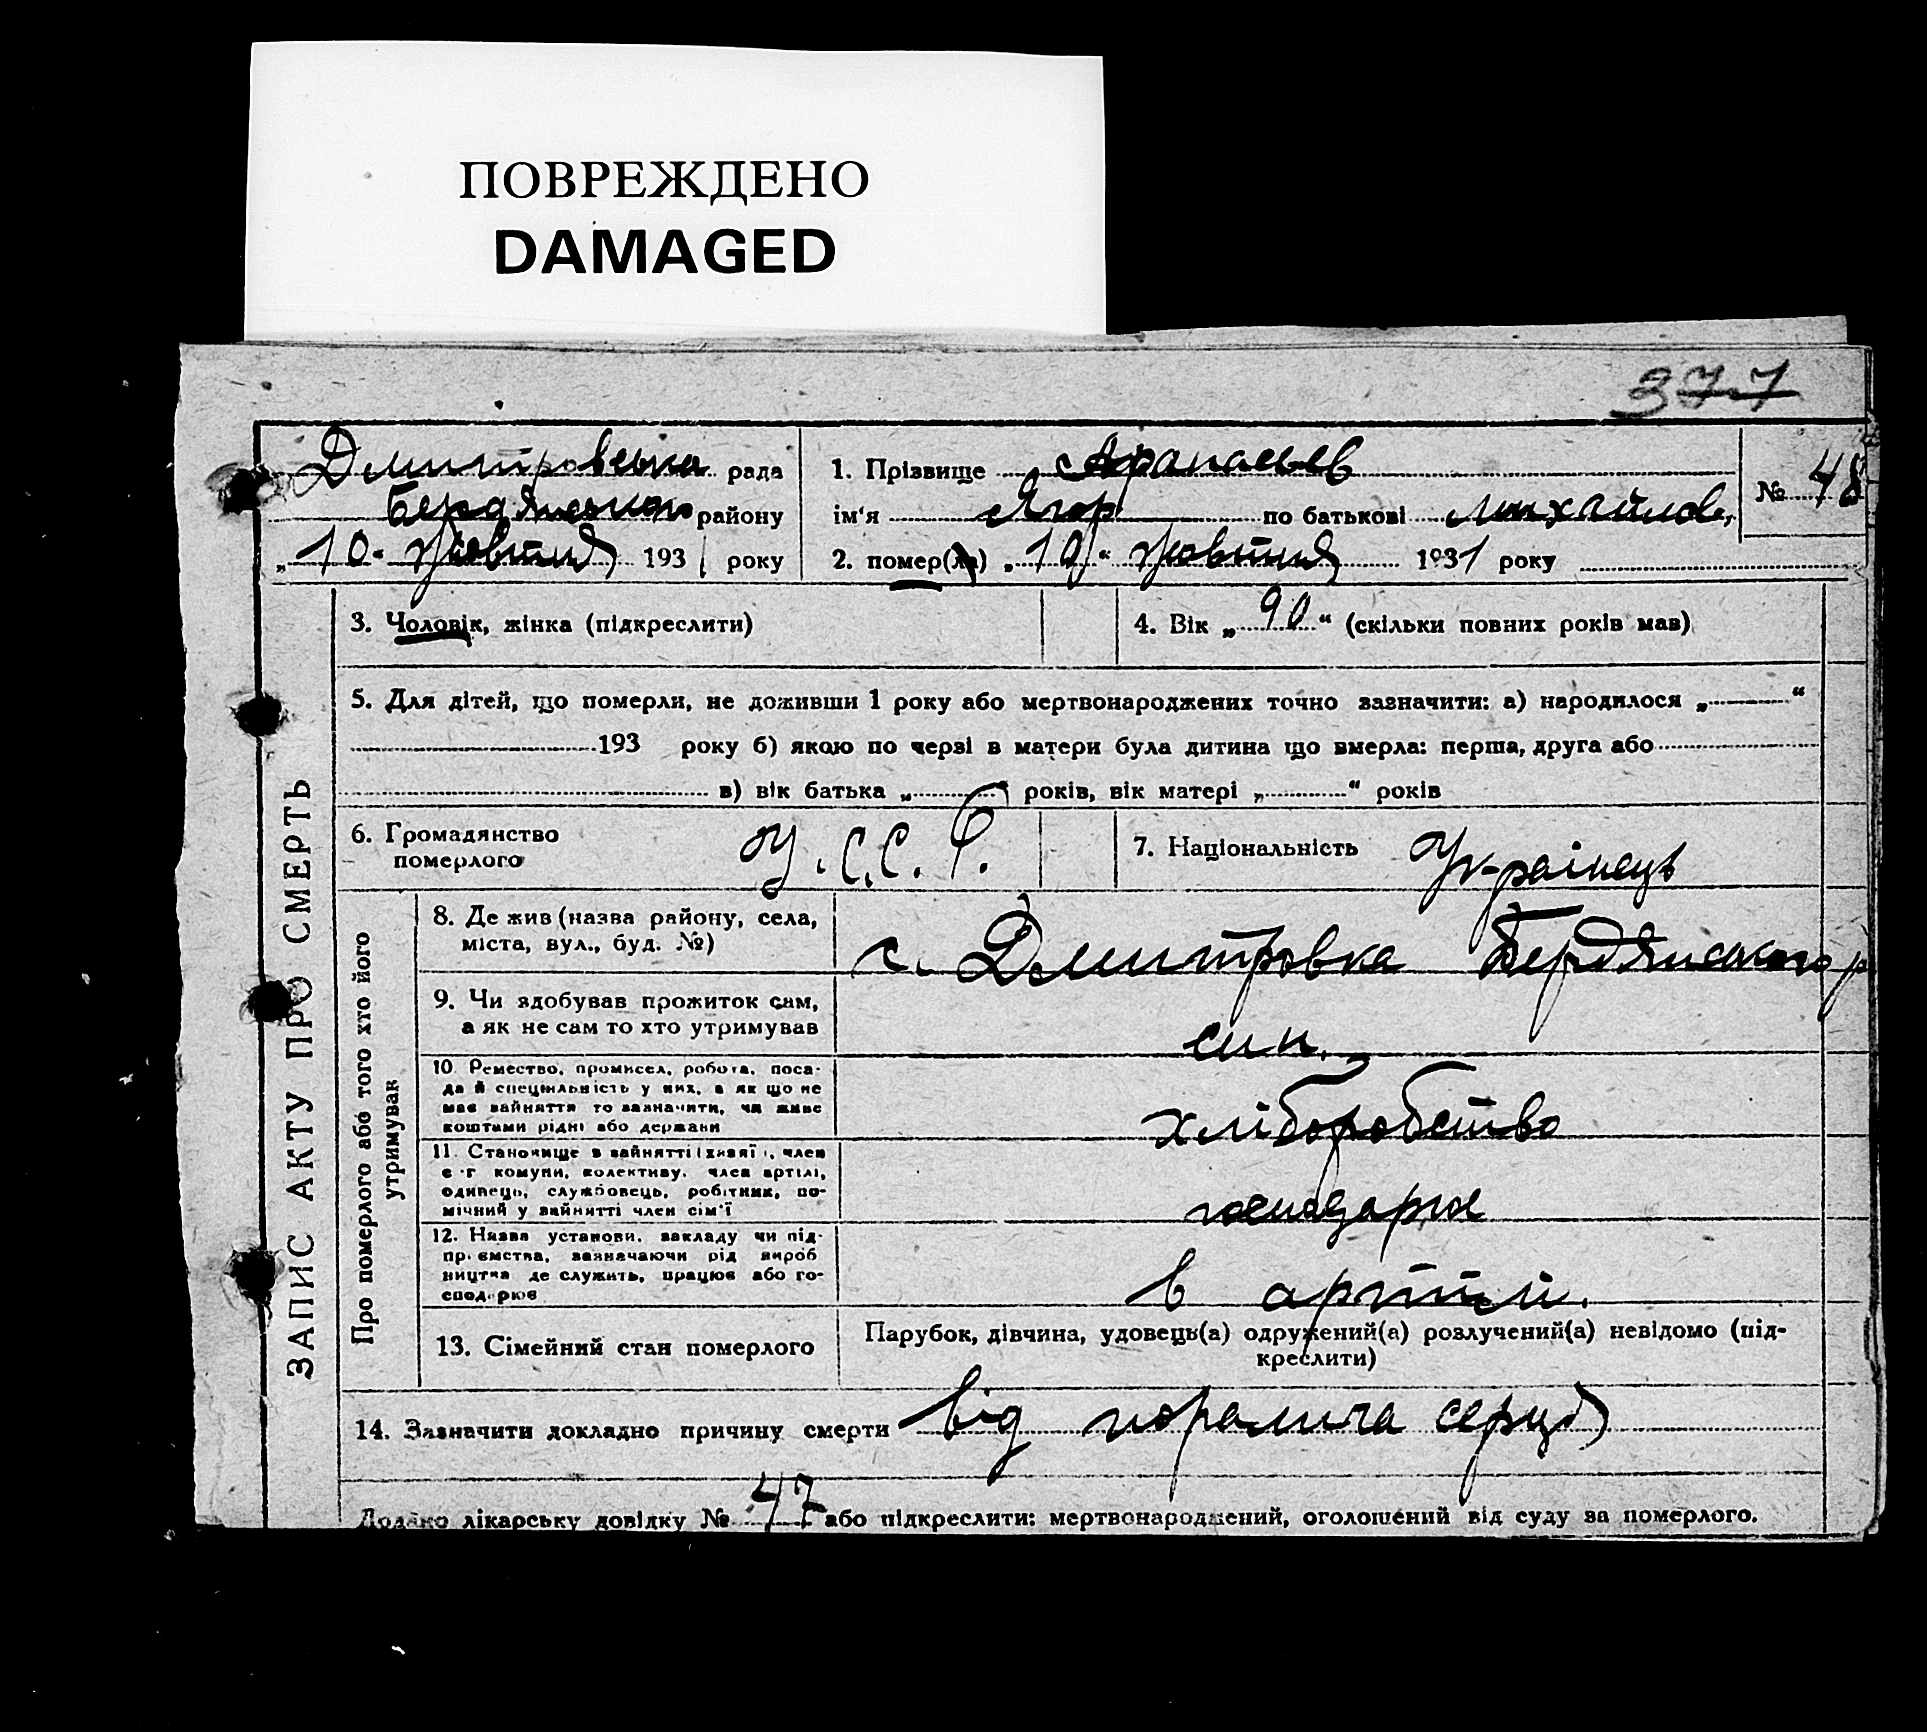 ПОВРЕЖДЕНО
DAMAGED
377
Дмитровська рада
Бердянського району
„10" жовтня 1931 року
1. Прізвище Афанасьєв
ім'я Ягор по батькові Михайлов.
2. помер(ла) „10" жовтня 1931 року
№ 48
3. Чоловік, жінка (підкреслити)
4. Вік „90" (скільки повних років мав)
5. Для дітей, що померли, не доживши 1 року або мертвонароджених точно зазначити: а) народилося „ "
193 року б) якою по черзі в матери була дитина що вмерла: перша, друга або
в) вік батька „ " років, вік матері „ " років
6. Громадянство
померлого
У.С.С.Р.
7. Національність Українець
ЗАПИС АКТУ ПРО СМЕРТЬ
Про померлого або того хто його
утримував
8. Де жив (назва району, села,
міста, вул., буд. №)
с. Дмитровка Бердянського р
9. Чи здобував прожиток сам,
а як не сам то хто утримував
син.
10. Ремество, промисел, робота, поса-
да й спеціяльність у них, а як що не
має зайняття то зазначити, чи живе
коштами рідні або держави
хліборобство
11. Становище в зайнятті (хазяї), член
с-г комуни, колективу, член артілі,
одинець, службовець, робітник, по-
мічний у зайнятті член сім'ї
господарюв
12. Назва установи, закладу чи під-
приємства, зазначаючи рід вироб
ництва де служить, працює або го-
сподарює
в артіли.
13. Сімейний стан померлого
Парубок, дівчина, удовець(а) одружений(а) розлучений(а) невідомо (під-
креслити)
14. Зазначити докладно причину смерти від пораліча серця
Додано лікарську довідку № 47 або підкреслити: мертвонароджений, оголошений від суду за померлого.